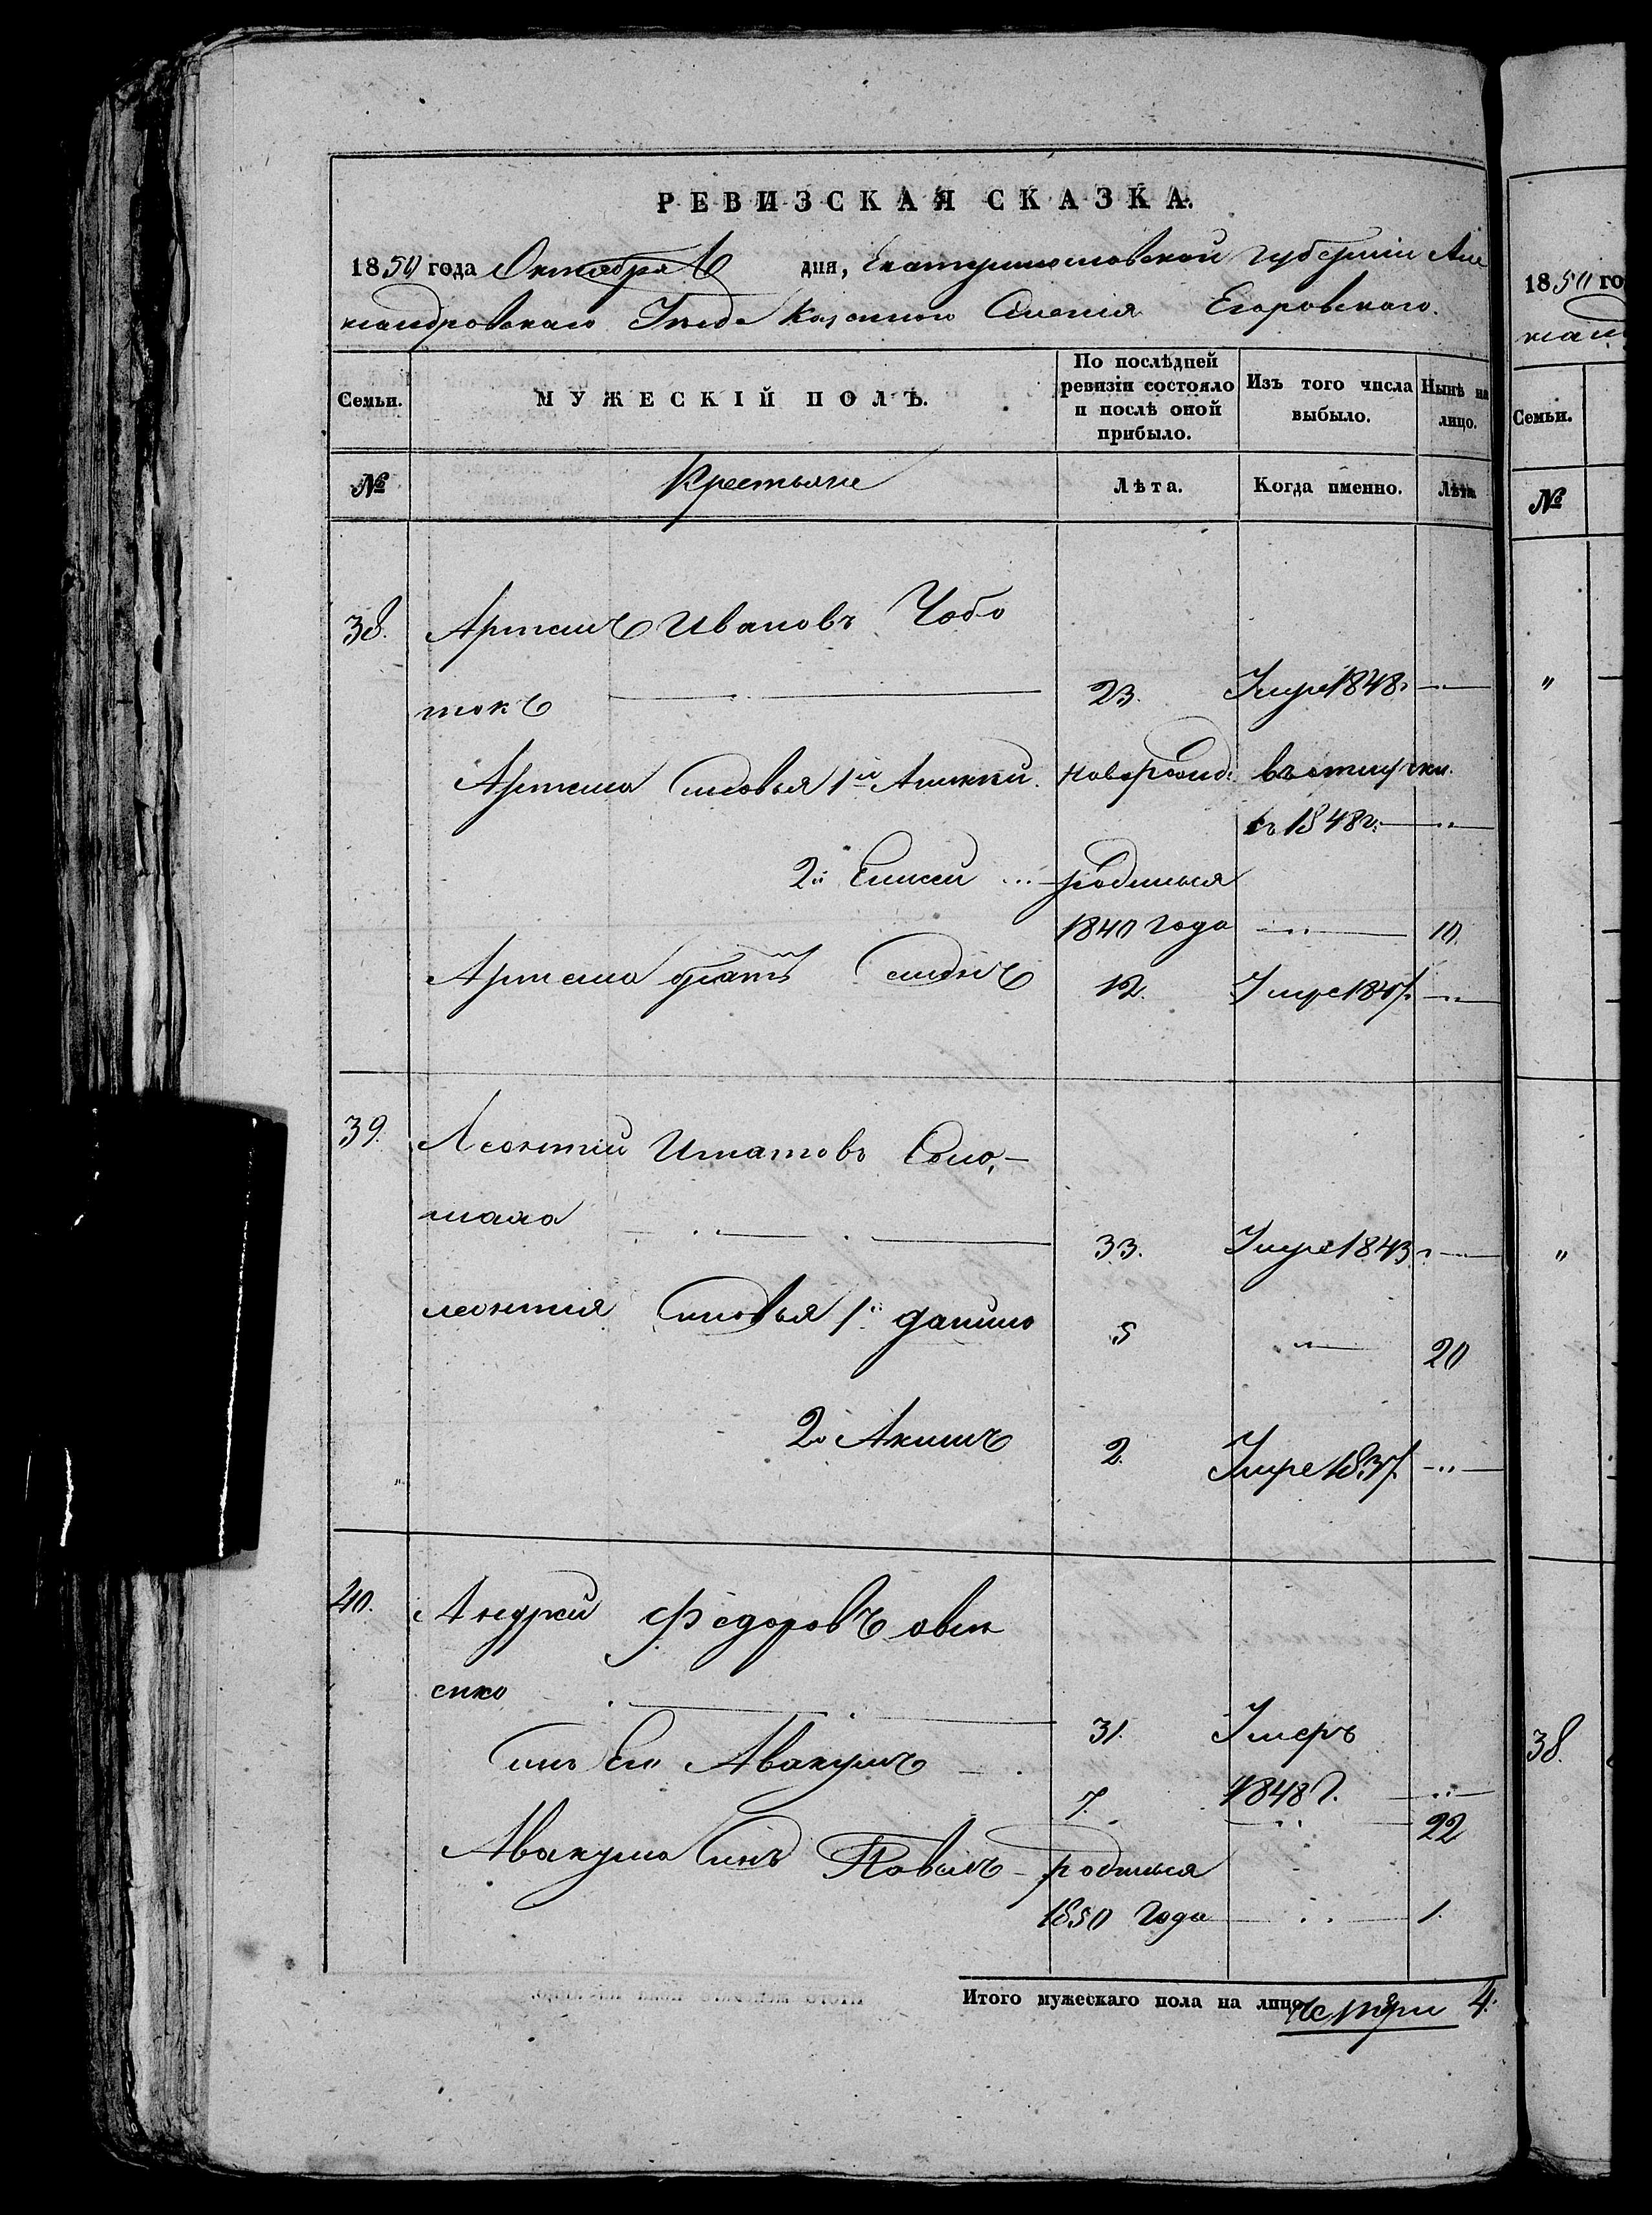 РЕВИЗСКАЯ СКАЗКА.
1850 года Октября 6 дня, Екатеринославской губернiи Але
ксандровскаго Уезда Казенного Селенiя Егоровскаго.
Семьи. МУЖЕСКІЙ ПОЛЪ. По послѣдней ревизіи состояло и послѣ оной прибыло. Изъ того числа выбыло. Нынѣ на лицо.
№ Крестьяне Лѣта. Когда именно. Лѣта
38. Артемъ Ивановъ Чобо
токъ 23. Умре 1848.
Артема Сыновья 1й Аникiй. новорожд: въ отлучки.
съ 1848 г.
2й Елисей родился
1840 года 10.
Артема братъ 12. Умре 1847.
39. Леонтiй Игнатовъ
33. Умре 1843.
Леонтiя Сыновья 1й Данило 5 20
2й Акимъ 2. Умре 1837.
40. Андрей Федоровъ овси
енко 31. Умеръ
1848 г.
сынъ Его Авакумъ 7. 22
Авакума Сынъ Павелъ родился
1850 года 1.
Итого мужескаго пола на лицо Четыри 4.
1850 го
Семьи.
№
38.